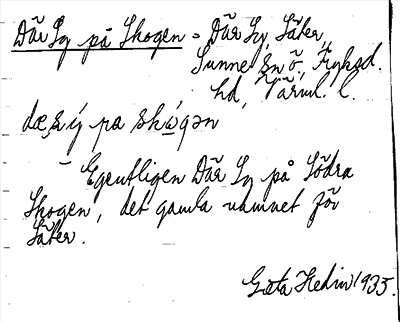 Där Sy på Skogen = Där Sy, Säter,
Sunne sn ö, Fryksd.
hd, Värml. l.
dæ, s ý pa skógən
– Egentligen Där Sy på Södra
Skogen, det gamla namnet för
Säter.
Göta Hedin 1935.